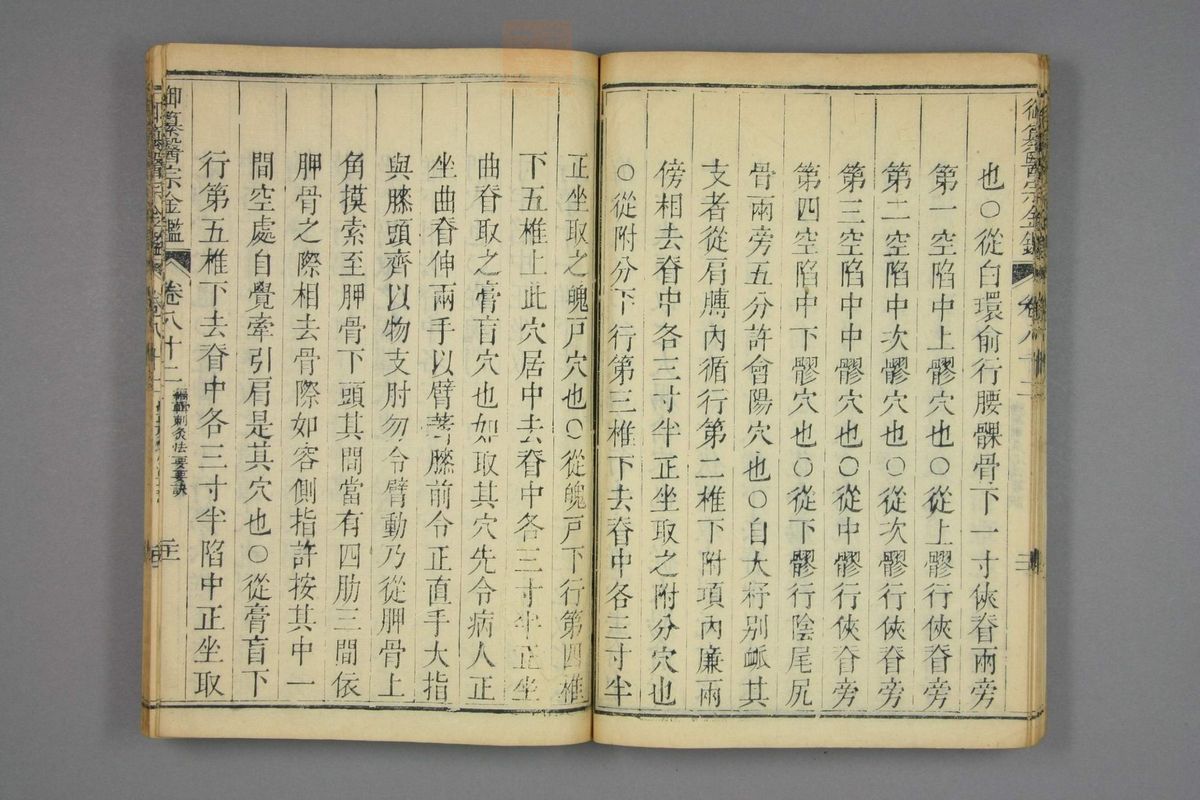 也〇從白環俞行腰髁骨下一寸俠脊兩旁
第一空陷中上髎穴也〇從上髎行俠脊旁
第二空陷中次髎穴也〇從次髎行俠脊旁
第三空陷中中髎穴也〇從中髎行俠脊旁
第四空陷中下髎穴也〇從下髎行陰尾尻
骨兩旁五分許會陽穴也〇自大杼别䘑其
支者從肩髆內循行第二椎下附項內廉兩
傍相去脊中各三寸半正坐取之附分穴也
〇從附分下行第三椎下去脊中各三寸半
正坐取之魄戸穴也〇從魄戸下行第四椎
下五椎上此穴居中去脊中各三寸半正坐
曲脊取之膏肓穴也如取其穴先令病人正
坐曲脊伸兩手以臂著膝前令正直手大指
與膝頭齊以物支肘勿令臂動乃從胛骨上
角摸索至胛骨下頭其間當有四肋三間依
胛骨之際相去骨際如容側指許按其中一
間空處自覺牽引肩是其穴也〇從膏肓下
行第五椎下去脊中各三寸半陷中正坐取
御纂醫宗金鑑 卷八十二 編輯刺灸法要訣